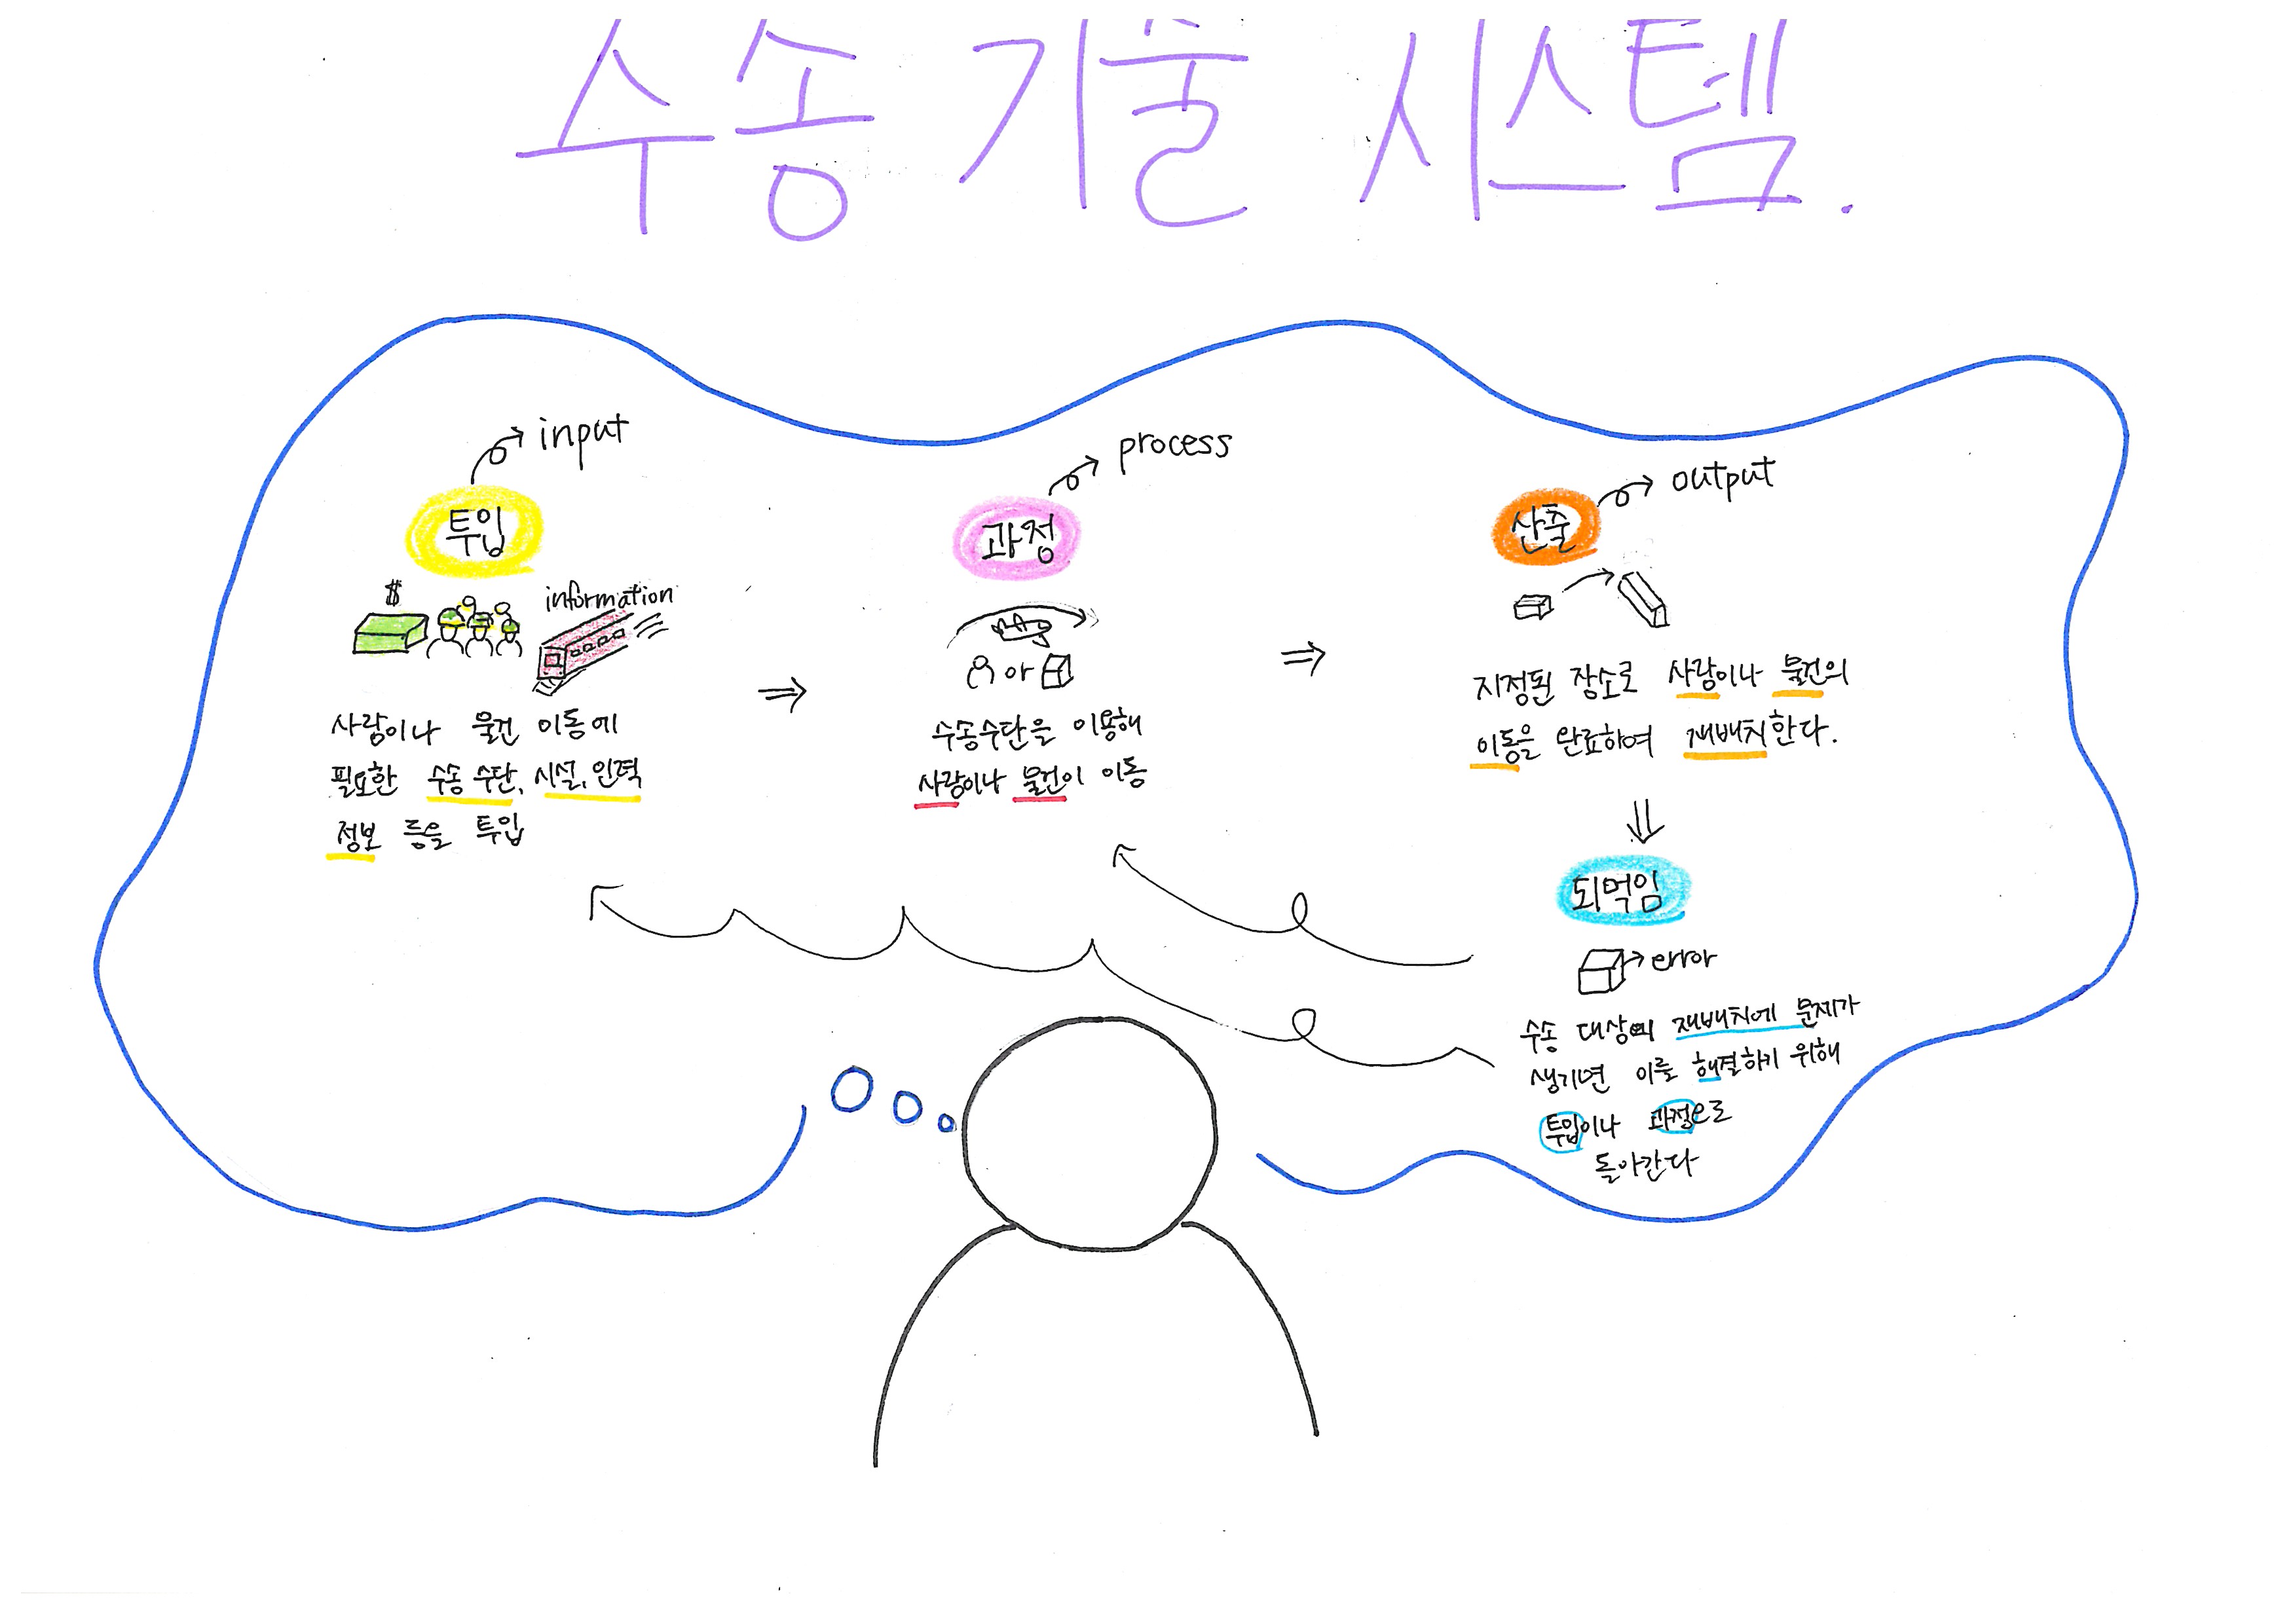 수송 기술 시스템.
input
투입
$
information
사람이나 물건 이동에
필요한 수송 수단, 시설, 인력
정보 등을 투입
process
과정
or
수송수단을 이용해
사람이나 물건이 이동
output
산출
지정된 장소로 사람이나 물건의
이동을 완료하여 재배치한다.
되먹임
error
수송 대상의 재배치에 문제가
생기면 이를 해결하기 위해
투입이나 과정으로
돌아간다